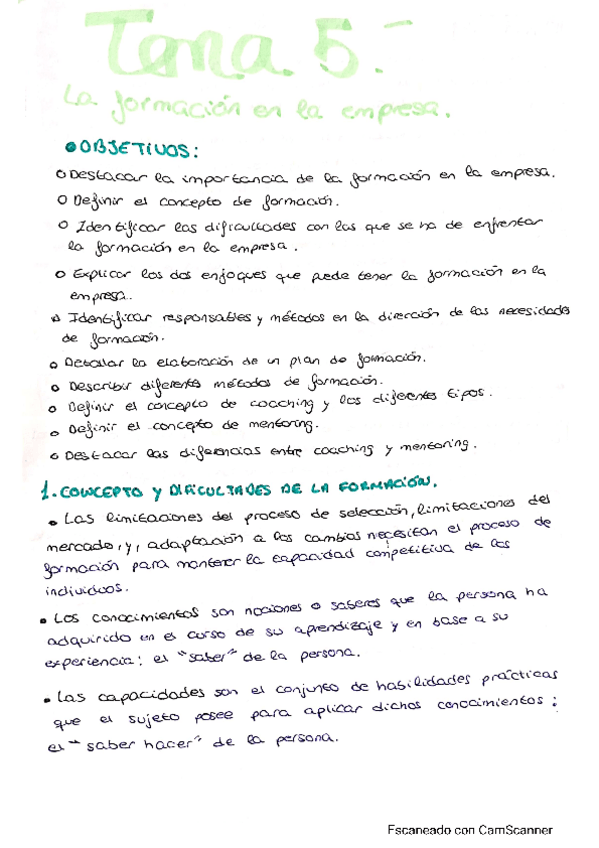 Tema 5.-
La formación en la empresa.
•OBJETIVOS:
○ Destacar la importancia de la formación en la empresa.
○ Definir el concepto de formación.
○ Identificar las dificultades con las que se ha de enfrentar
la formación en la empresa.
○ Explicar los dos enfoques que puede tener la formación en la
empresa.
○ Identificar responsables y métodos en la dirección de las necesidades
de formación.
○ Detallar la elaboración de un plan de formación.
○ Describir diferentes métodos de formación.
○ Definir el concepto de coaching y los diferentes tipos.
○ Definir el concepto de mentoring.
○ Destacar las diferencias entre coaching y mentoring.
1. CONCEPTO Y DIFICULTADES DE LA FORMACIÓN.
• Las limitaciones del proceso de selección, limitaciones del
mercado, y, adaptación a los cambios necesitan el proceso de
formación para mantener la capacidad competitiva de los
individuos.
• Los conocimientos son nociones o saberes que la persona ha
adquirido en el curso de su aprendizaje y en base a su
experiencia: el "saber" de la persona.
• Las capacidades son el conjunto de habilidades prácticas
que el sujeto posee para aplicar dichos conocimientos:
el "saber hacer" de la persona.
Escaneado con CamScanner